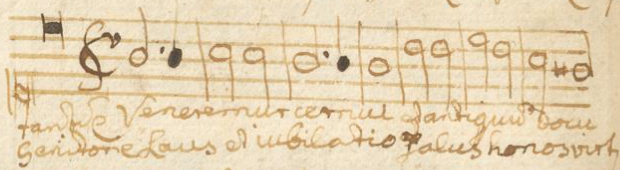 Veneremur cernui et antiquũ docu
Genitori Laus et iubilatio salus honor virt